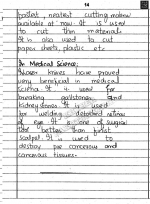 14
fastest, neatest cutting method
available at now. It is used
to cut thin materials.
It is also used to cut
paper sheets, plastic etc.
In Medical Science:
knives have proved
very beneficial in medical
It is used for
breaking gallstones and
kidney stones. It is used
for welding detached retina
of eye. It is one of surgical
tool better than
scalpel. It is used to
destroy pre cancerous and
cancerous tissues.